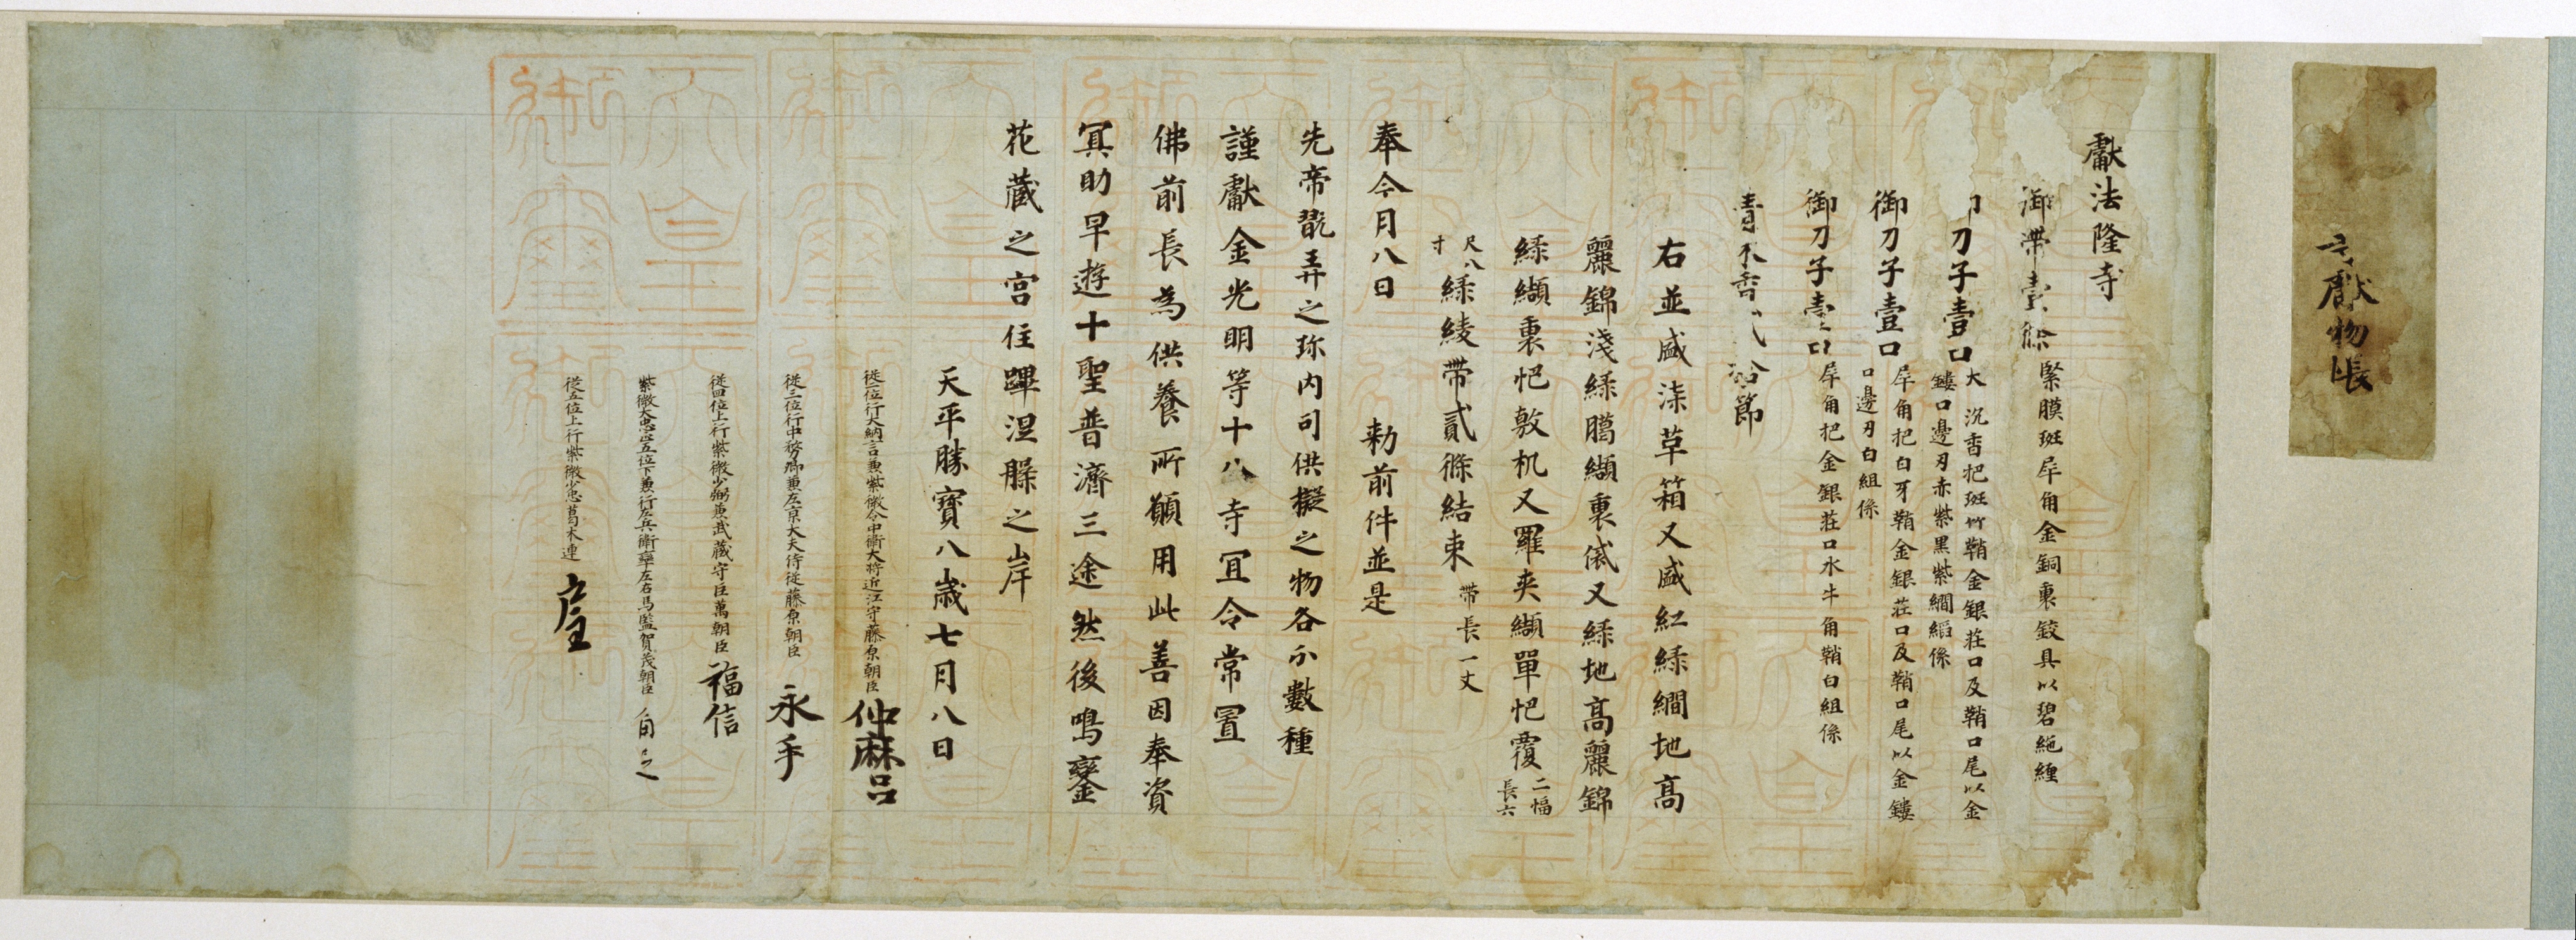 獻物帳
獻法隆寺
御帶壹條 緊膜斑犀角金銅裹鉸具以碧絁纏
刀子壹口 大 沉香把斑竹鞘金銀荘口及鞘口尾以金
鏤口邊刃赤紫黒紫繝縚係
御刀子壹口 犀角把白牙鞘金銀荘口及鞘口尾以金鏤
口邊刃白組係
御刀子壹口 犀角把金銀荘口水牛角鞘白組係
青木香 拾節
右並盛柒草箱又盛紅緑繝地高
麗錦淺緑臈纈裏袋又緑地高麗錦
緑纈裏帊敷机又羅夾纈單帊覆 二幅
長六
尺八
寸 緑綾帶貳條結束 帶長一丈
奉今月八日 勅前件並是
先帝翫弄之珎内司供擬之物各分數種
謹獻金光明等十八寺宜令常置
佛前長為供養所願用此善因奉資
冥助早遊十聖普濟三途然後鳴鑾
花蔵之宮住蹕涅槃之岸
天平勝寶八歳七月八日
従二位行大納言兼紫微令中衛大将近江守藤原朝臣 仲麻呂
従三位行中務卿兼左京大夫侍従藤原朝臣 永手
従四位上行紫微少弼兼武蔵守巨萬朝臣 福信
紫微大忠正五位下兼行左兵衛率左右馬監賀茂朝臣 角足
従五位上行紫微少忠葛木連 戸主
天皇御璽